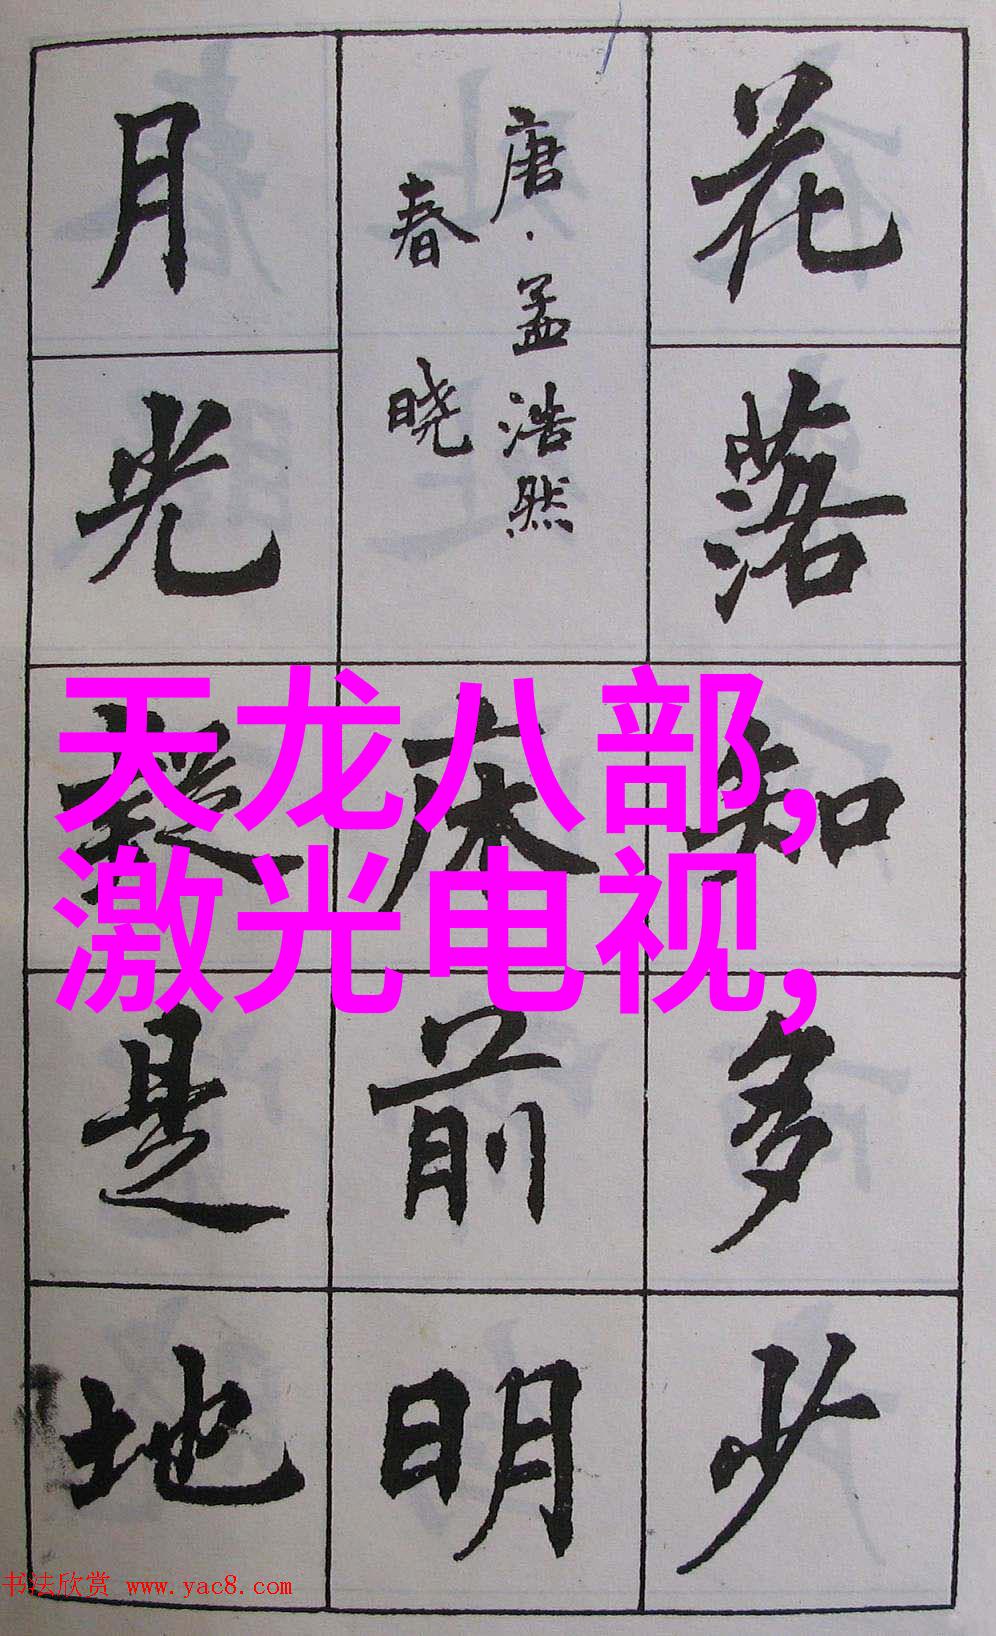 花落知多少
唐·孟浩然
春晓
床前明
月光疑是地
天龙八部,
激光电视,
书法欣赏 www.yac8.com